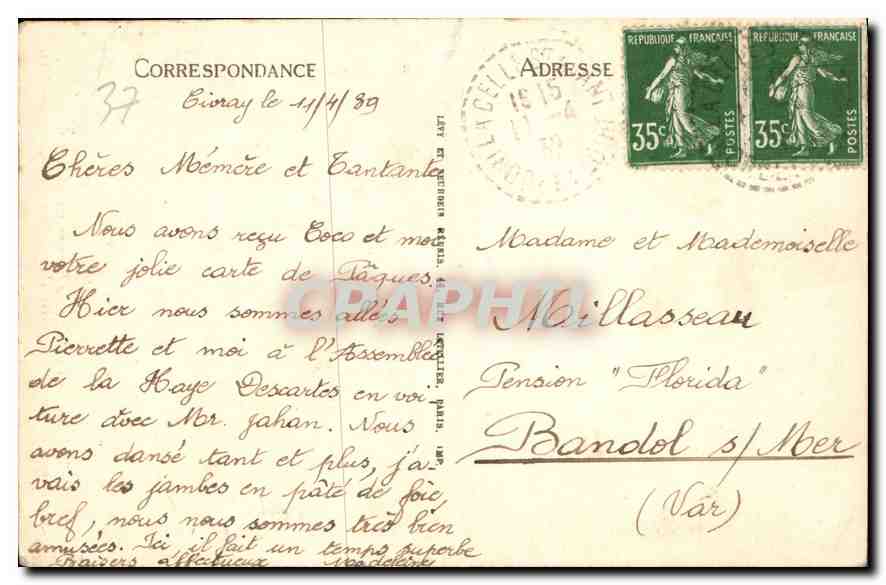 CORRESPONDANCE
37
Civray le 11/4/39
Chères Mémère et Tantante
Nous avons reçu Coco et moi
votre jolie carte de Pâques.
Hier nous sommes allées
Pierrette et moi à l'Assemblée
de la Haye Descartes en voi-
ture avec Mr. Jahan. Nous
avons dansé tant et plus, j'a-
vais les jambes en pâté de foie,
bref, nous nous sommes très bien
amusées. Ici, il fait un temps superbe
Baisers affectueux Madeleine
LÉVY ET NEURDEIN RÉUNIS, 44, RUE LETELLIER, PARIS. IMP.
ADRESSE
LA CELLE
15 15
11 -4
39
REPUBLIQUE FRANÇAISE
35c
POSTES
REPUBLIQUE FRANÇAISE
35c
POSTES
Madame et Mademoiselle
Millasseau
Pension "Florida"
Bandol s/Mer
(Var)
CPAPHIL